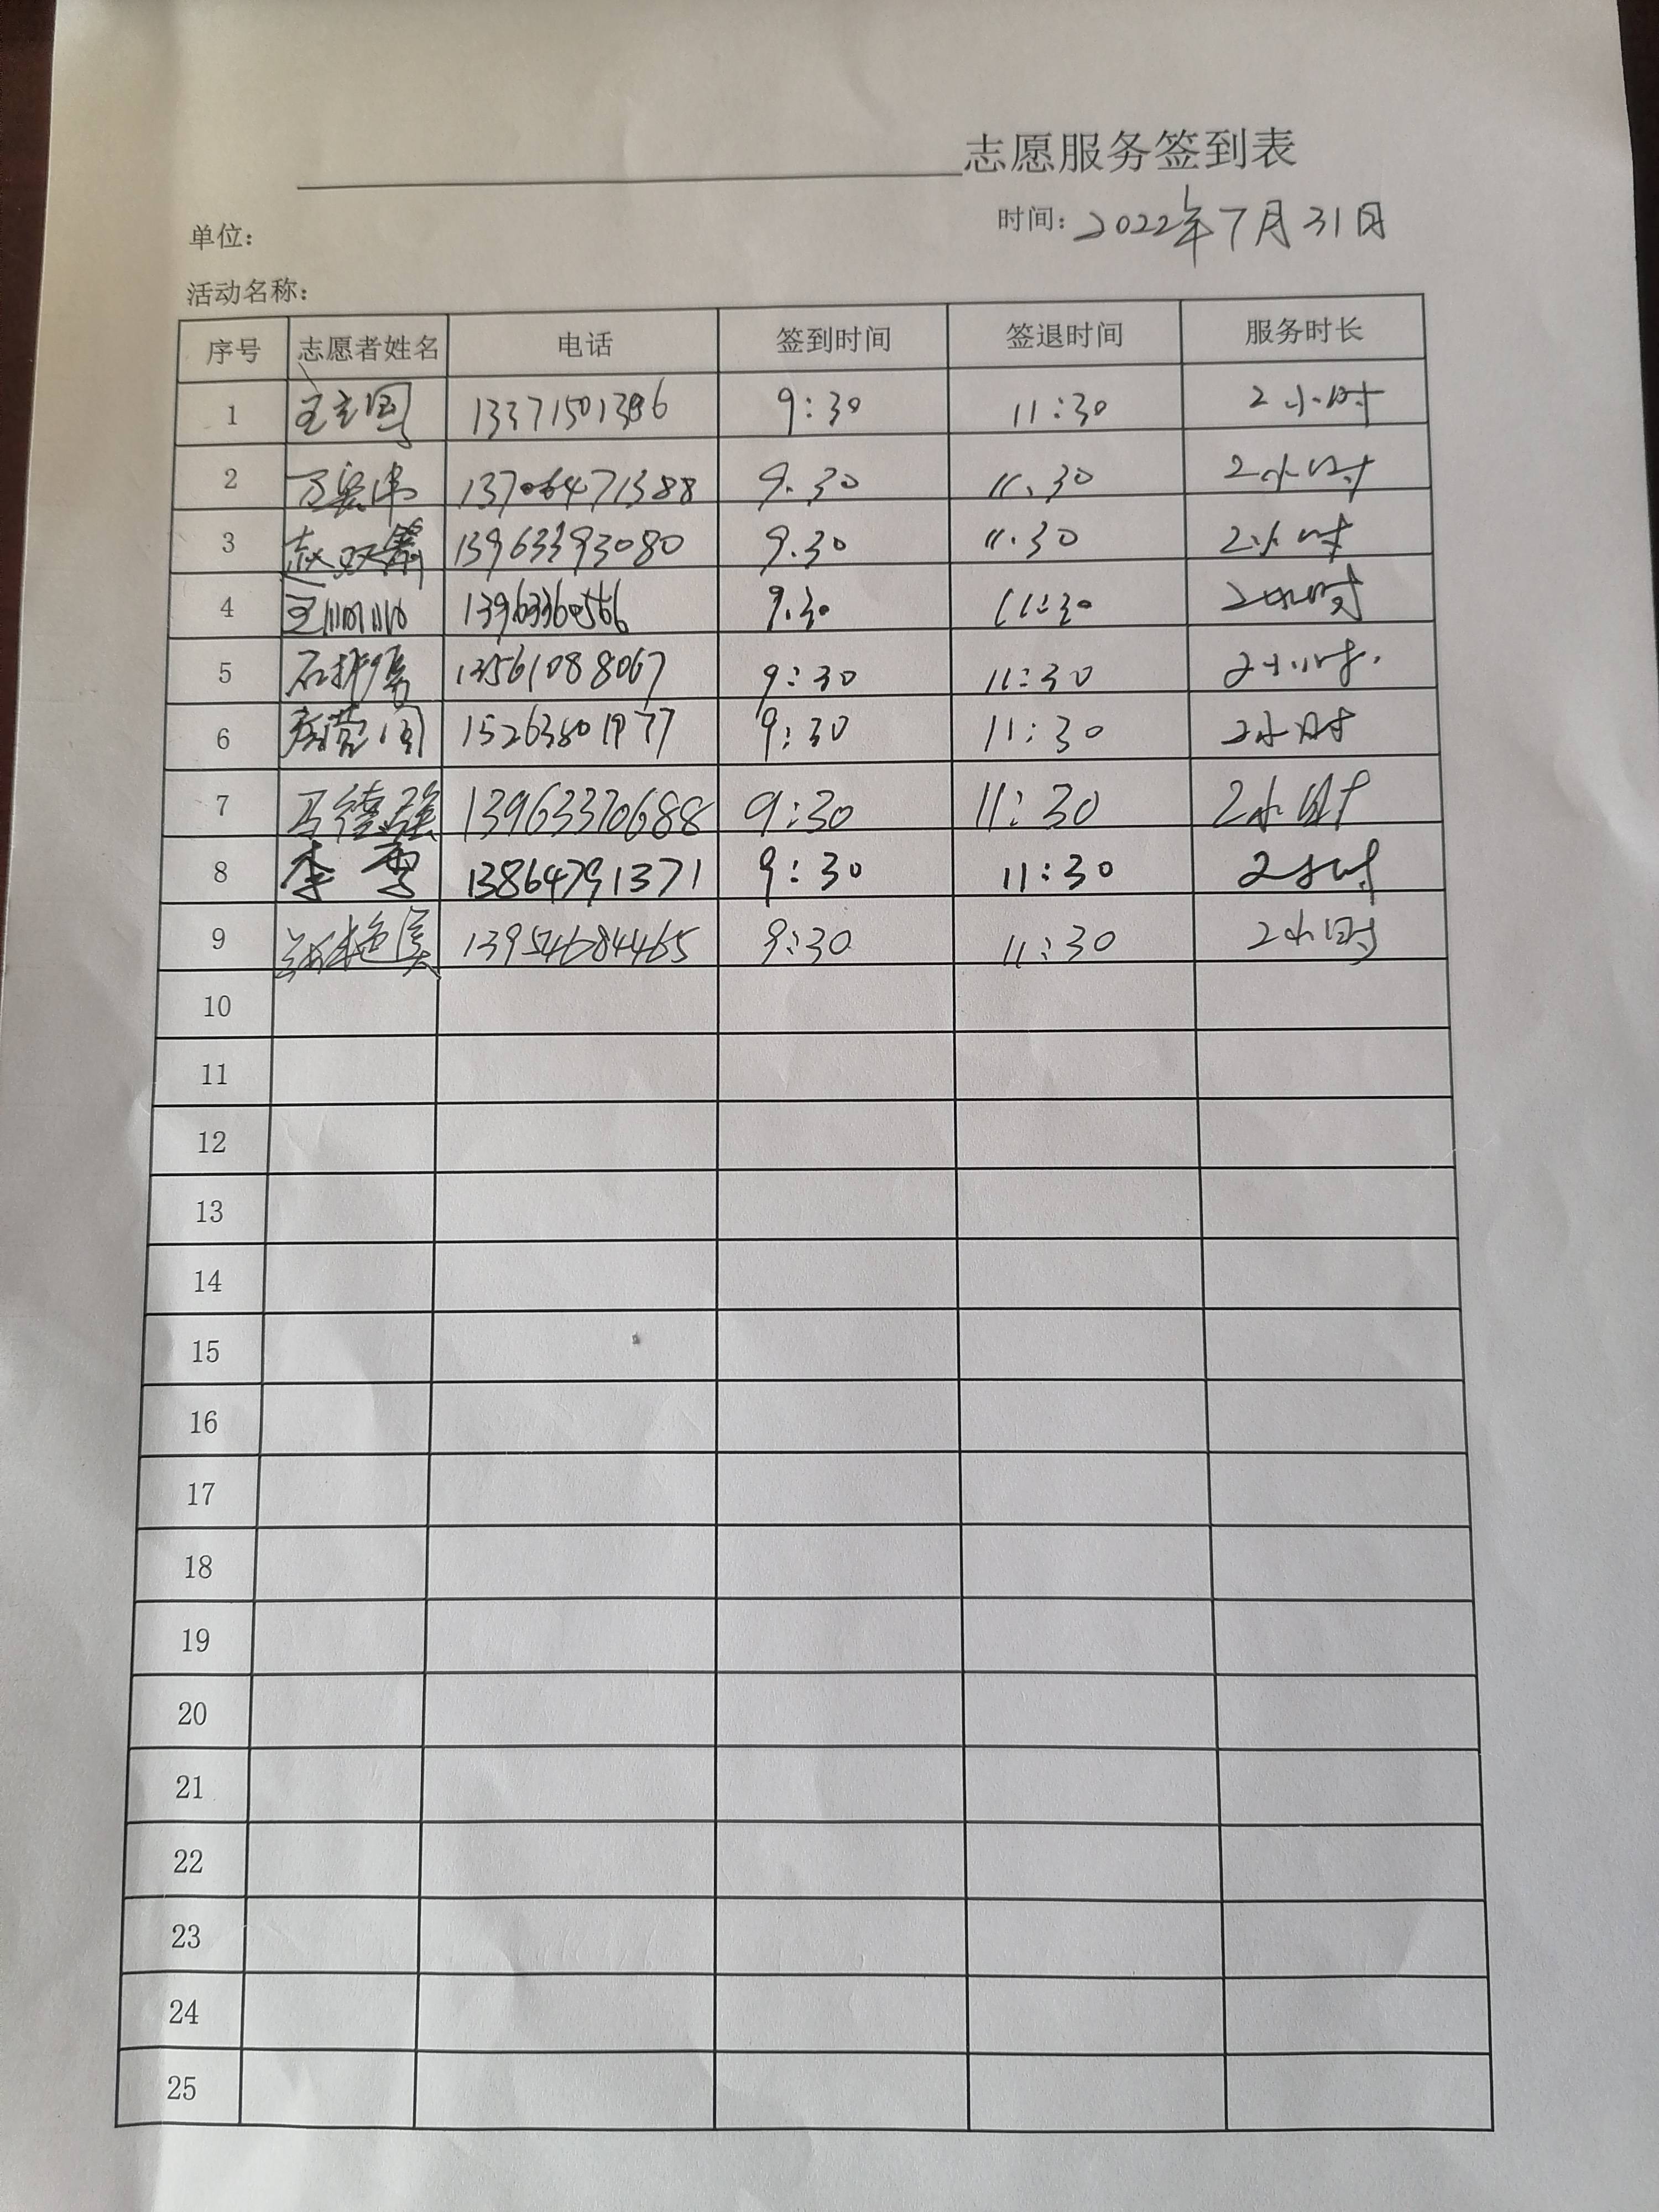 志愿服务签到表
单位： 时间：2022年7月31日
活动名称：
序号 志愿者姓名 电话 签到时间 签退时间 服务时长
1 9:30 11:30 2小时
2 13706471388 9.30 11.30 2小时
3 13963393080 9.30 11.30 2小时
4 9.30 11:30 2小时
5 13561088067 9:30 11:30 2小时
6 9:30 11:30 2小时
7 马德强 13963370688 9:30 11:30 2小时
8 李勇 13864791371 9:30 11:30 2小时
9 13954684465 9:30 11:30 2小时
10
11
12
13
14
15
16
17
18
19
20
21
22
23
24
25